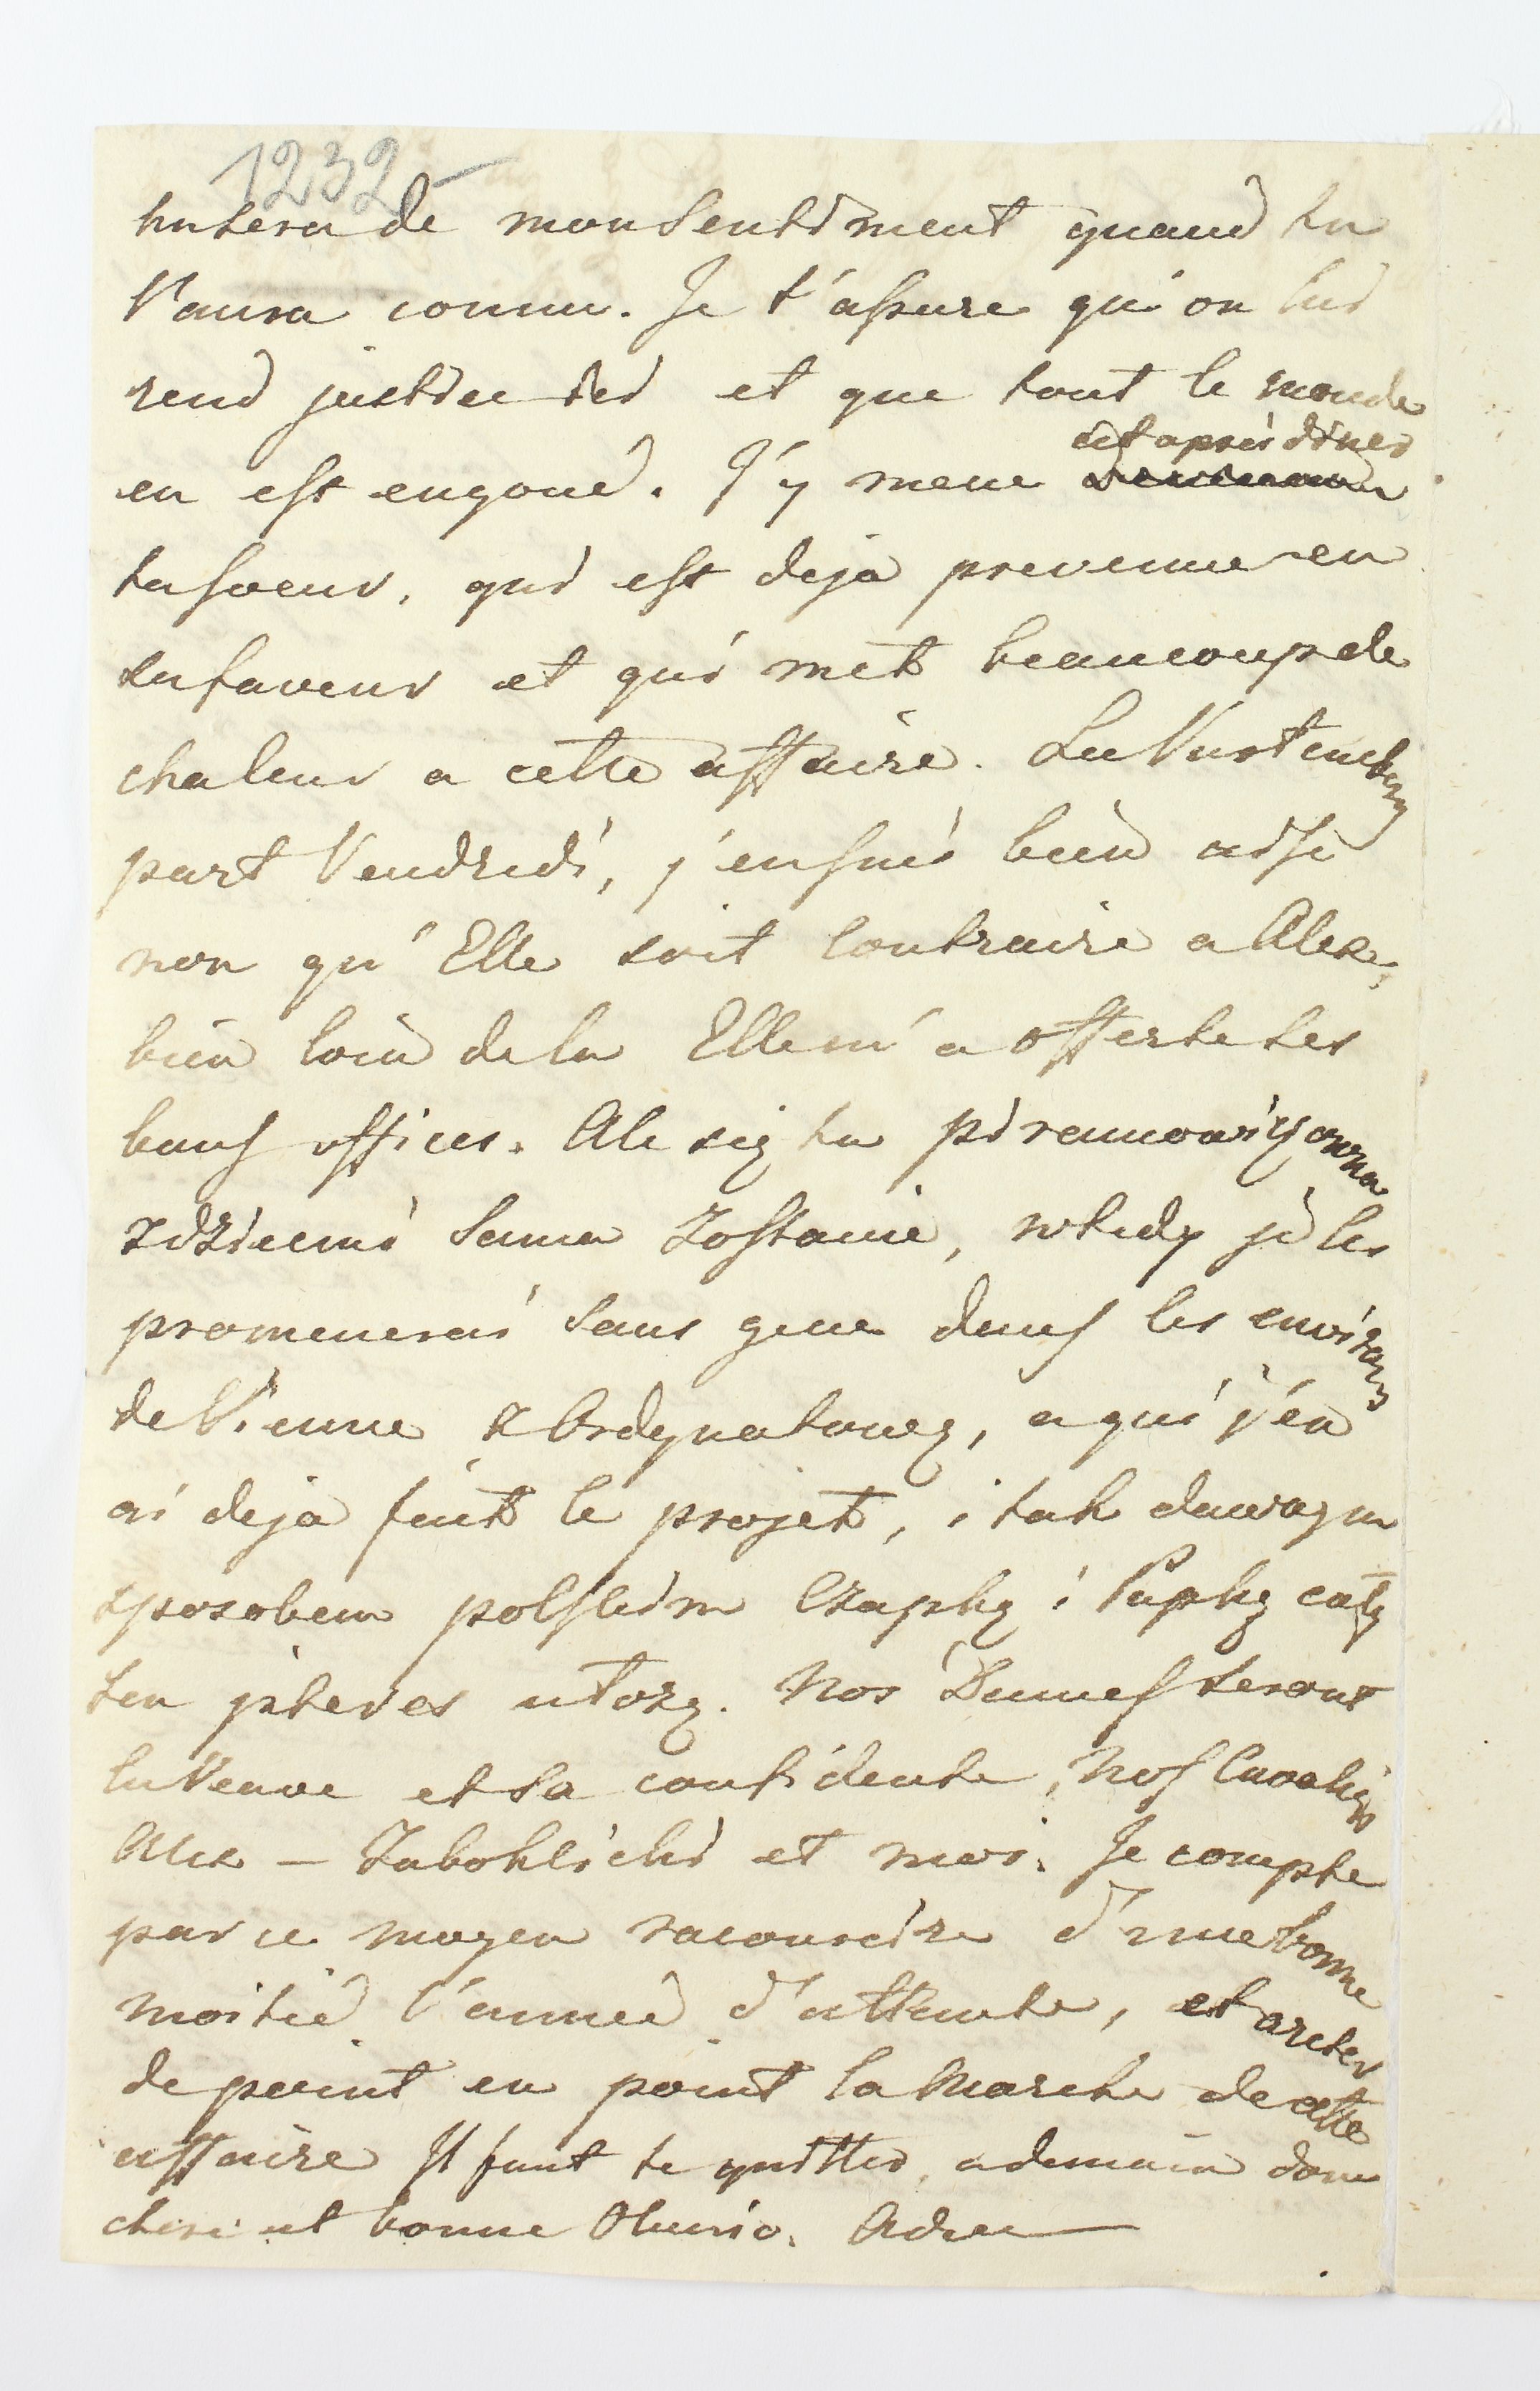 1232
tu sera de mon sentiment quand tu
l'aura connu. Je t'assure qu'on lui
rend justice ici et que tout le monde
en est engoué. J'y mene cet après diner
ta soeur, qui est deja prevenue en
sa faveur et qui met beaucoup de
chaleur a cette affaire. La Virtemberg
part Vendredi, j'en suis bien aise
non qu'Elle soit contraire a Alex,
bien loin de la Elle m'a offerte ses
bons offices. Ale się ta
z dziećmi sama zostanie, wtedy je les
promenerai sans gene dans les environs
de Vienne z Ordynatową, a qui j'en
ai deja fait le projet, i tak dawnym
sposobem polskim Czapkę i Papkę całą
ten jnteres utorę. Nos Dames seront
la Veuve et sa confidente, nos Cavaliers
Alex – Zaboklicki et moi. Je compte
par ce moyen racourcire d'une bonne
moitié l'année d'attente, et areter
de point en point la marche de cette
affaire Il faut te quitter, a demain donc
chere et bonne Olunio. Adieu